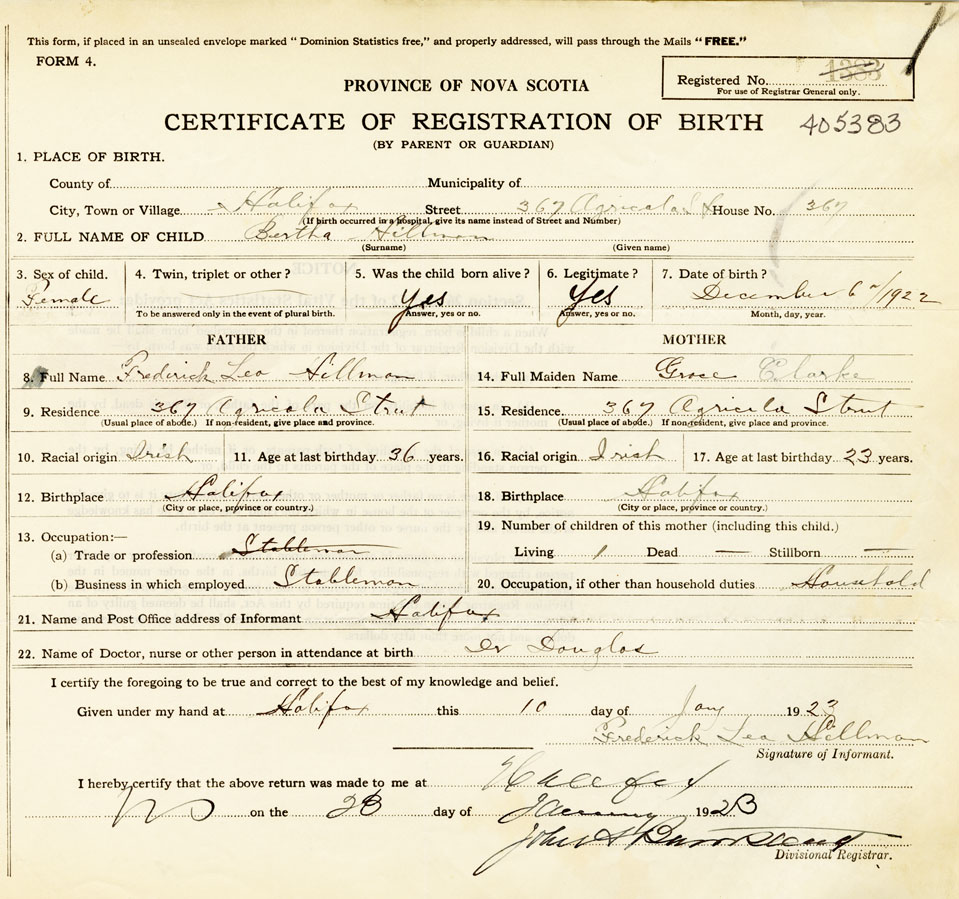 This form, if placed in an unsealed envelope marked " Dominion Statistics free," and properly addressed, will pass through the Mails "FREE."
FORM 4.
Registered No. 1383
For use of Registrar General only.
PROVINCE OF NOVA SCOTIA
CERTIFICATE OF REGISTRATION OF BIRTH 405383
(BY PARENT OR GUARDIAN)
1. PLACE OF BIRTH.
County of Municipality of
City, Town or Village Halifax Street 367 Agricola St House No. 367
(If birth occurred in a hospital, give its name instead of Street and Number)
2. FULL NAME OF CHILD Bertha Hillman
(Surname) (Given name)
3. Sex of child. 4. Twin, triplet or other? 5. Was the child born alive? 6. Legitimate? 7. Date of birth?
Female Yes Yes December 6 1922
To be answered only in the event of plural birth. Answer, yes or no. Answer, yes or no. Month, day, year.
FATHER MOTHER
8. Full Name Frederick Leo Hillman 14. Full Maiden Name Grace Clarke
9. Residence 367 Agricola Street 15. Residence. 367 Agricola Street
(Usual place of abode.) If non-resident, give place and province. (Usual place of abode.) If non-resident, give place and province.
10. Racial origin Irish 11. Age at last birthday 36 years. 16. Racial origin Irish 17. Age at last birthday 23 years.
12. Birthplace Halifax 18. Birthplace Halifax
(City or place, province or country.) (City or place, province or country.)
13. Occupation:— 19. Number of children of this mother (including this child.)
(a) Trade or profession Stableman Living 1 Dead — Stillborn —
(b) Business in which employed Stableman 20. Occupation, if other than household duties Household
21. Name and Post Office address of Informant Halifax
22. Name of Doctor, nurse or other person in attendance at birth Dr Douglas
I certify the foregoing to be true and correct to the best of my knowledge and belief.
Given under my hand at Halifax this 10 day of Jany 1923
Frederick Leo Hillman
Signature of Informant.
I hereby certify that the above return was made to me at Halifax
NS on the 23 day of January 1923
John
Divisional Registrar.